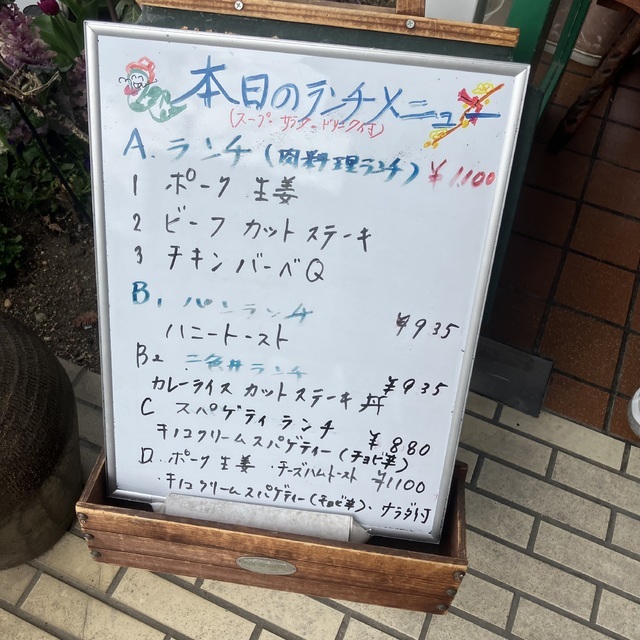 本日のランチメニュー
(スープ サラダ ドリンク付)
A. ランチ (肉料理ランチ) ¥1,100
1 ポーク 生姜
2 ビーフ カット ステーキ
3 チキン バーベQ
B1 パンランチ
ハニートースト ¥935
B2 ランチ
カレーライス カットステーキ丼 ¥935
C スパゲティ ランチ
キノコクリームスパゲティー(チョビ辛) ¥880
D. ポーク生姜・チーズハムトースト ¥1100
・キノコクリームスパゲティー(チョビ辛)・